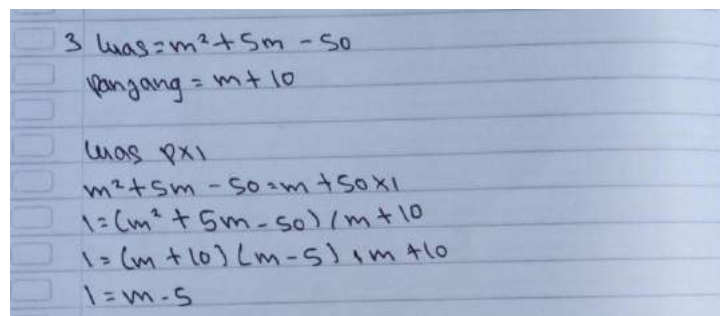 3 luas = m² + 5m - 50
panjang = m + 10
luas p x l
m² + 5m - 50 = m + 50 x l
l = (m² + 5m - 50) / m + 10
l = (m + 10) (m - 5) / m + 10
l = m - 5